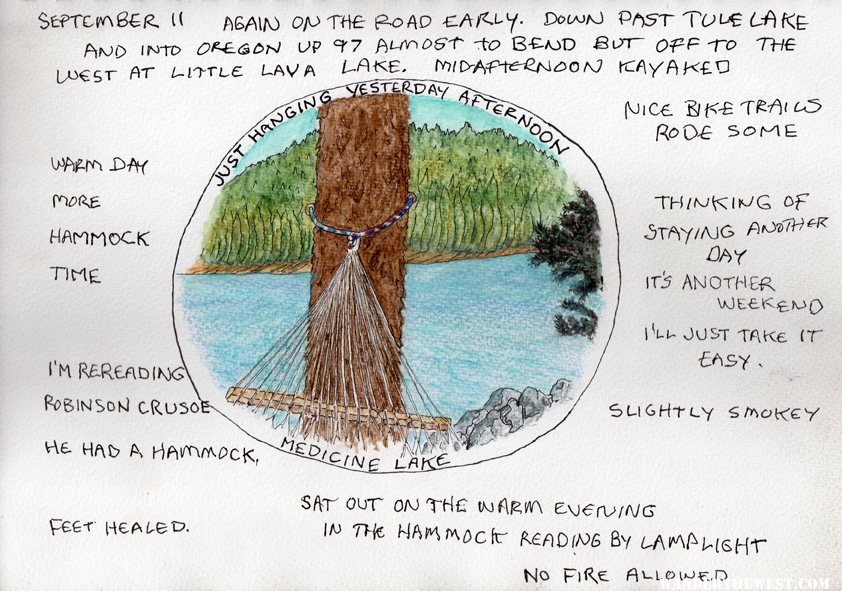 SEPTEMBER 11 AGAIN ON THE ROAD EARLY. DOWN PAST TULE LAKE
AND INTO OREGON UP 97 ALMOST TO BEND BUT OFF TO THE
WEST AT LITTLE LAVA LAKE. MIDAFTERNOON KAYAKED
JUST HANGING YESTERDAY AFTERNOON
MEDICINE LAKE
WARM DAY
MORE
HAMMOCK
TIME
I'M REREADING
ROBINSON CRUSOE
HE HAD A HAMMOCK.
FEET HEALED.
NICE BIKE TRAILS
RODE SOME
THINKING OF
STAYING ANOTHER
DAY
IT'S ANOTHER
WEEKEND
I'LL JUST TAKE IT
EASY.
SLIGHTLY SMOKEY
SAT OUT ON THE WARM EVENING
IN THE HAMMOCK READING BY LAMPLIGHT
NO FIRE ALLOWED
WANDERTHEWEST.COM